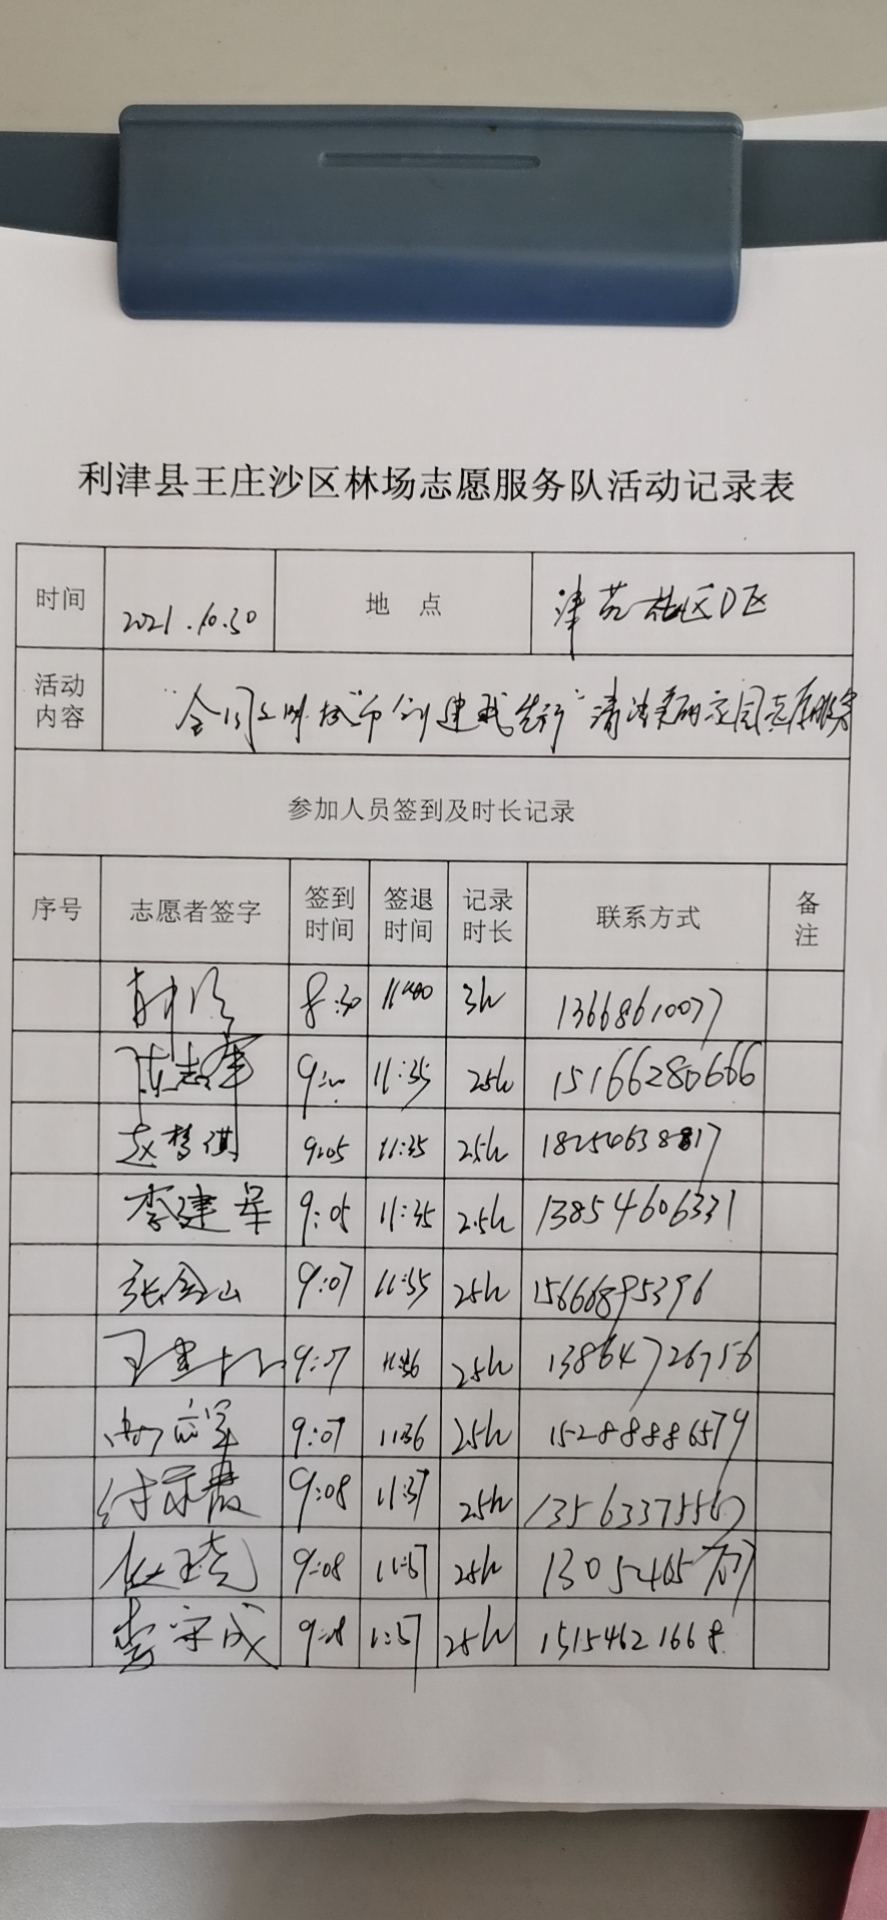 利津县王庄沙区林场志愿服务队活动记录表
时间 2021.10.30 地点 津苑社区D区
活动内容 "全国文明城市创建我先行"清洁美丽家园志愿服务
参加人员签到及时长记录
序号 志愿者签字 签到时间 签退时间 记录时长 联系方式 备注
8:30 3h 13668610077
陈志军 11:35 2.5h 15166280666
赵梦琪 9:05 11:35 2.5h
李建军 9:05 11:35 2.5h 13854606331
张金山 9:07 2.5h 15666895396
9:07 2.5h 13864726756
9:07 11:36 2.5h 15288886579
9:08 11:37 2.5h 13563375567
9:08 2.5h
李守成 2.5h 15154621668